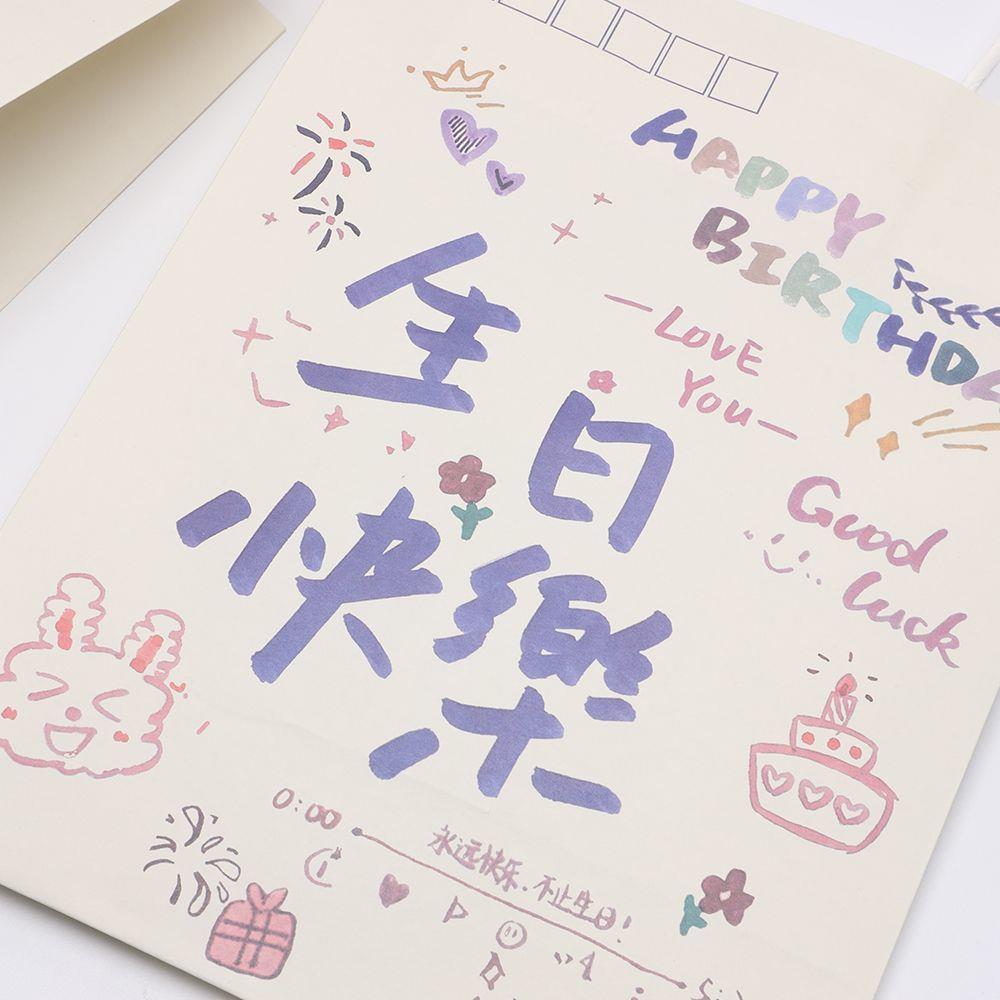 HAPPY
BIRTHDA
LOVE
You
生日
快樂
Good
luck
0:00
永远快乐,不止生日!